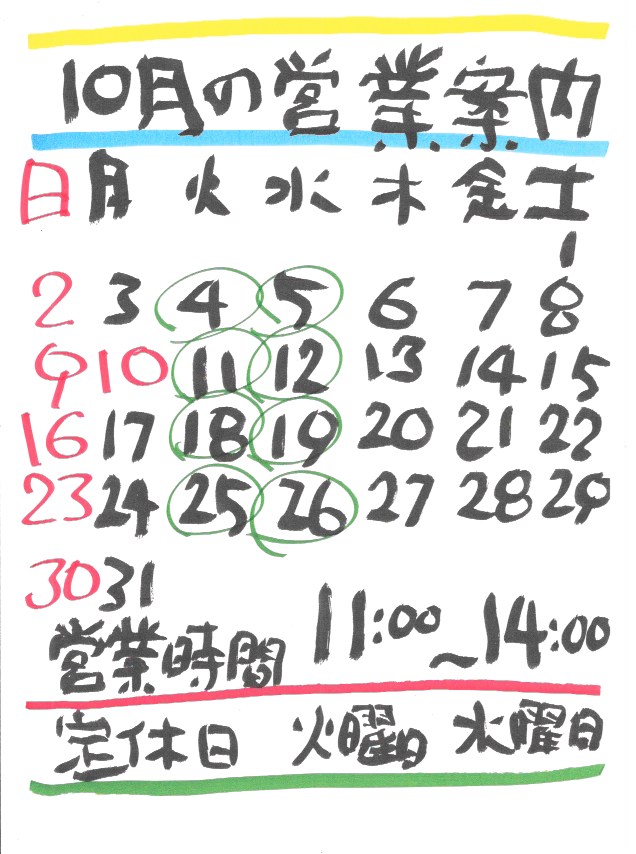 10月の営業案内
日 月 火 水 木 金 土
1
2 3 4 5 6 7 8
9 10 11 12 13 14 15
16 17 18 19 20 21 22
23 24 25 26 27 28 29
30 31
営業時間 11:00~14:00
定休日 火曜日 水曜日